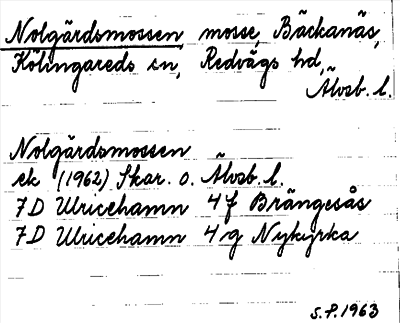 Nolgärdsmossen, mosse, Bäckanäs,
Kölingareds sn, Redvägs hd,
Älvsb. l.
Nolgärdsmossen
ek (1962) Skar. o. Älvsb. l.
7D Ulricehamn 4f Brängesås
7D Ulricehamn 4g Nykyrka
S.P. 1963